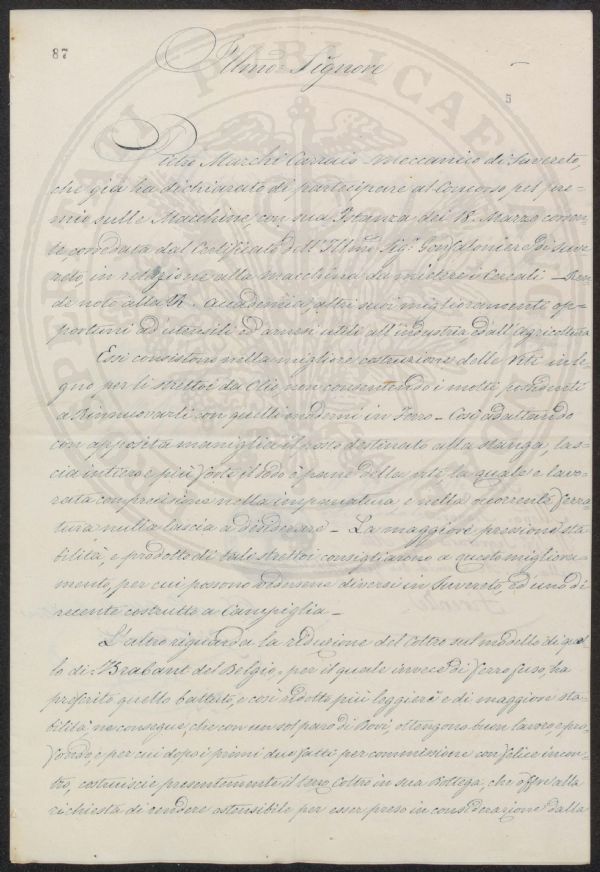 87
Illmo: Signore
5
Pietro Marchi Carraio meccanico di Suvereto,
che già ha dichiarato di partecipare al Concorso pel pre-
mio sulle Macchine, con sua Istanza dei 18. Marzo corren-
te corredata dal Certificato dell'Illmo Sigr. Gonfaloniere di Suve-
reto, in relazione alla macchina da mietere i Cereali – Ren-
de note alla R. Accademia, altri suoi miglioramenti op-
portuni ad utensili ed arnesi utili all'industria ed all'agricoltura
Essi consistono nella migliore costruzione delle Viti in le-
gno, per li strettoi da Olio, non consentendo i molti possidenti
a Rinnuovarli con quelli moderni in Ferro – Così adattando
con apposita maniglia il posto destinato alla stanga, las-
cia intiero e più forte il dado o pane della vite la quale è lavo-
rata con precisione nella impanatura e nella occorrente ferra-
tura nulla lascia a desiderare – La maggiore pressione, sta-
bilità, e prodotto di tale strettoi consigliarono a questo migliora-
mento, per cui possono vedersene diversi in Suvereto, ed uno di
recente costrutto a Campiglia –
L'altro riguarda la riduzione del Coltro sul modello di quel-
lo di Brabant del Belgio, per il quale invece di ferro fuso, ha
preferito quello battuto, e così ridotto più leggiero e di maggiore sta-
bilità ne consegue, che con un sol paro di Bovi, ottengono buon lavoro e pro-
fondo, e per cui dopo i primi due fatti, per commissione con felice incon-
tro, costruisce presentemente il terzo Coltro in sua Bottega, che offre alla
richiesta di rendere ostensibile per esser preso in considerazione dalla